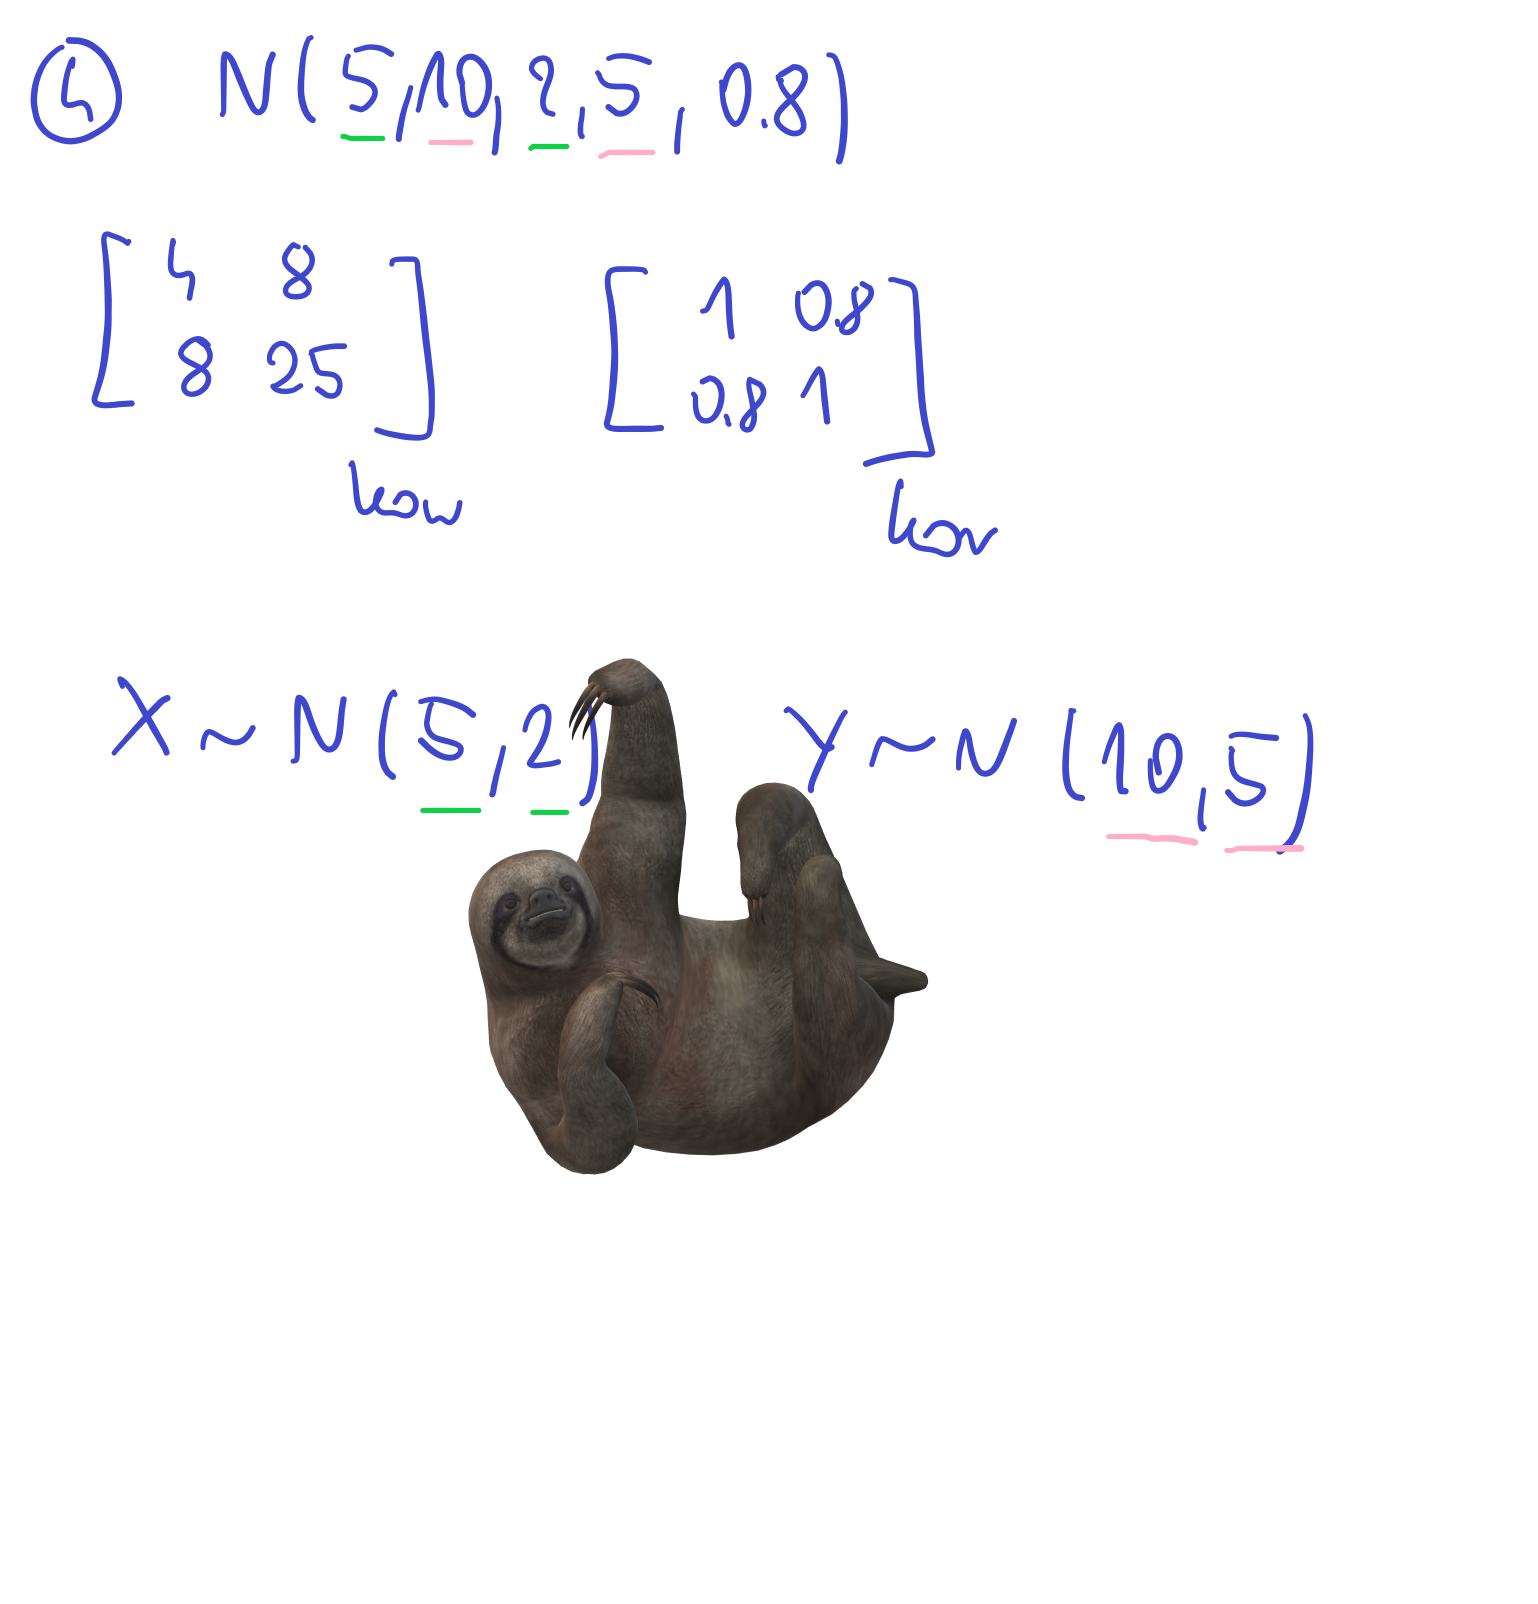 4 N(5,10,2,5,0.8)
[4 8 8 25] kow [1 0.8 0.8 1] kor
X ~ N(5,2) Y ~ N(10,5)